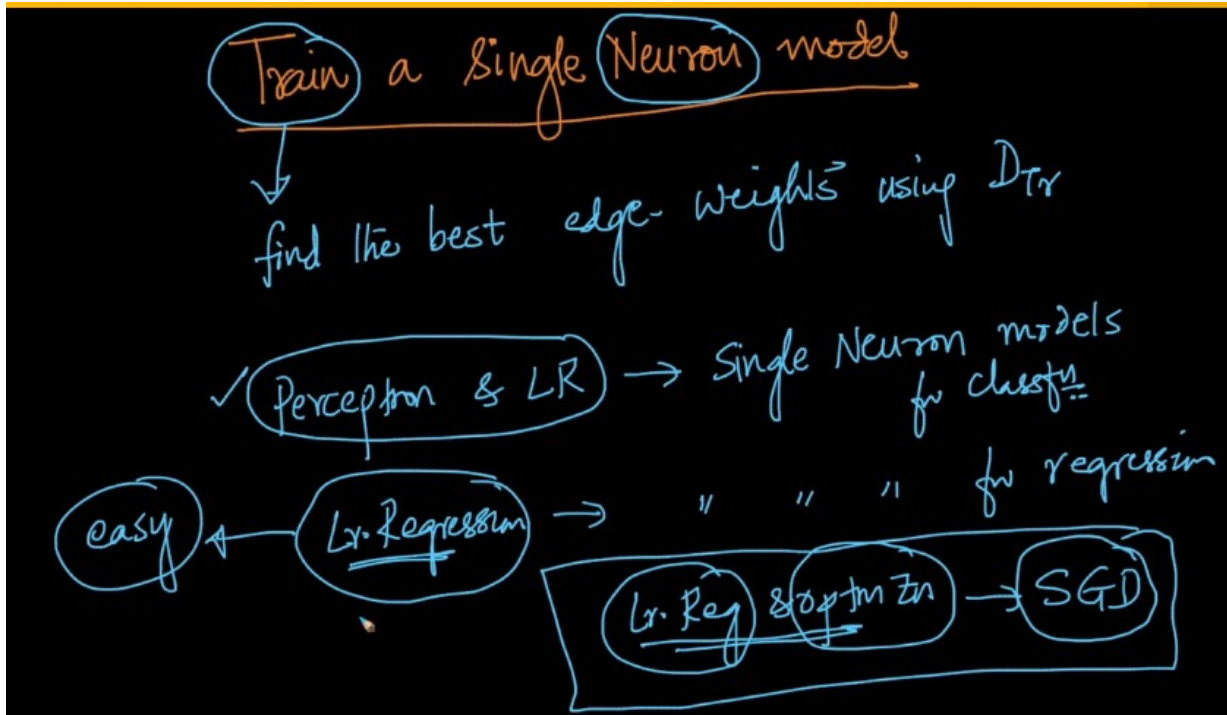 Train a Single Neuron model
find the best edge-weights using DTr
✓ Perceptron & LR → Single Neuron models
for classfn
easy ← Lr. Regression → " " " for regression
Lr. Reg & optmZn → SGD